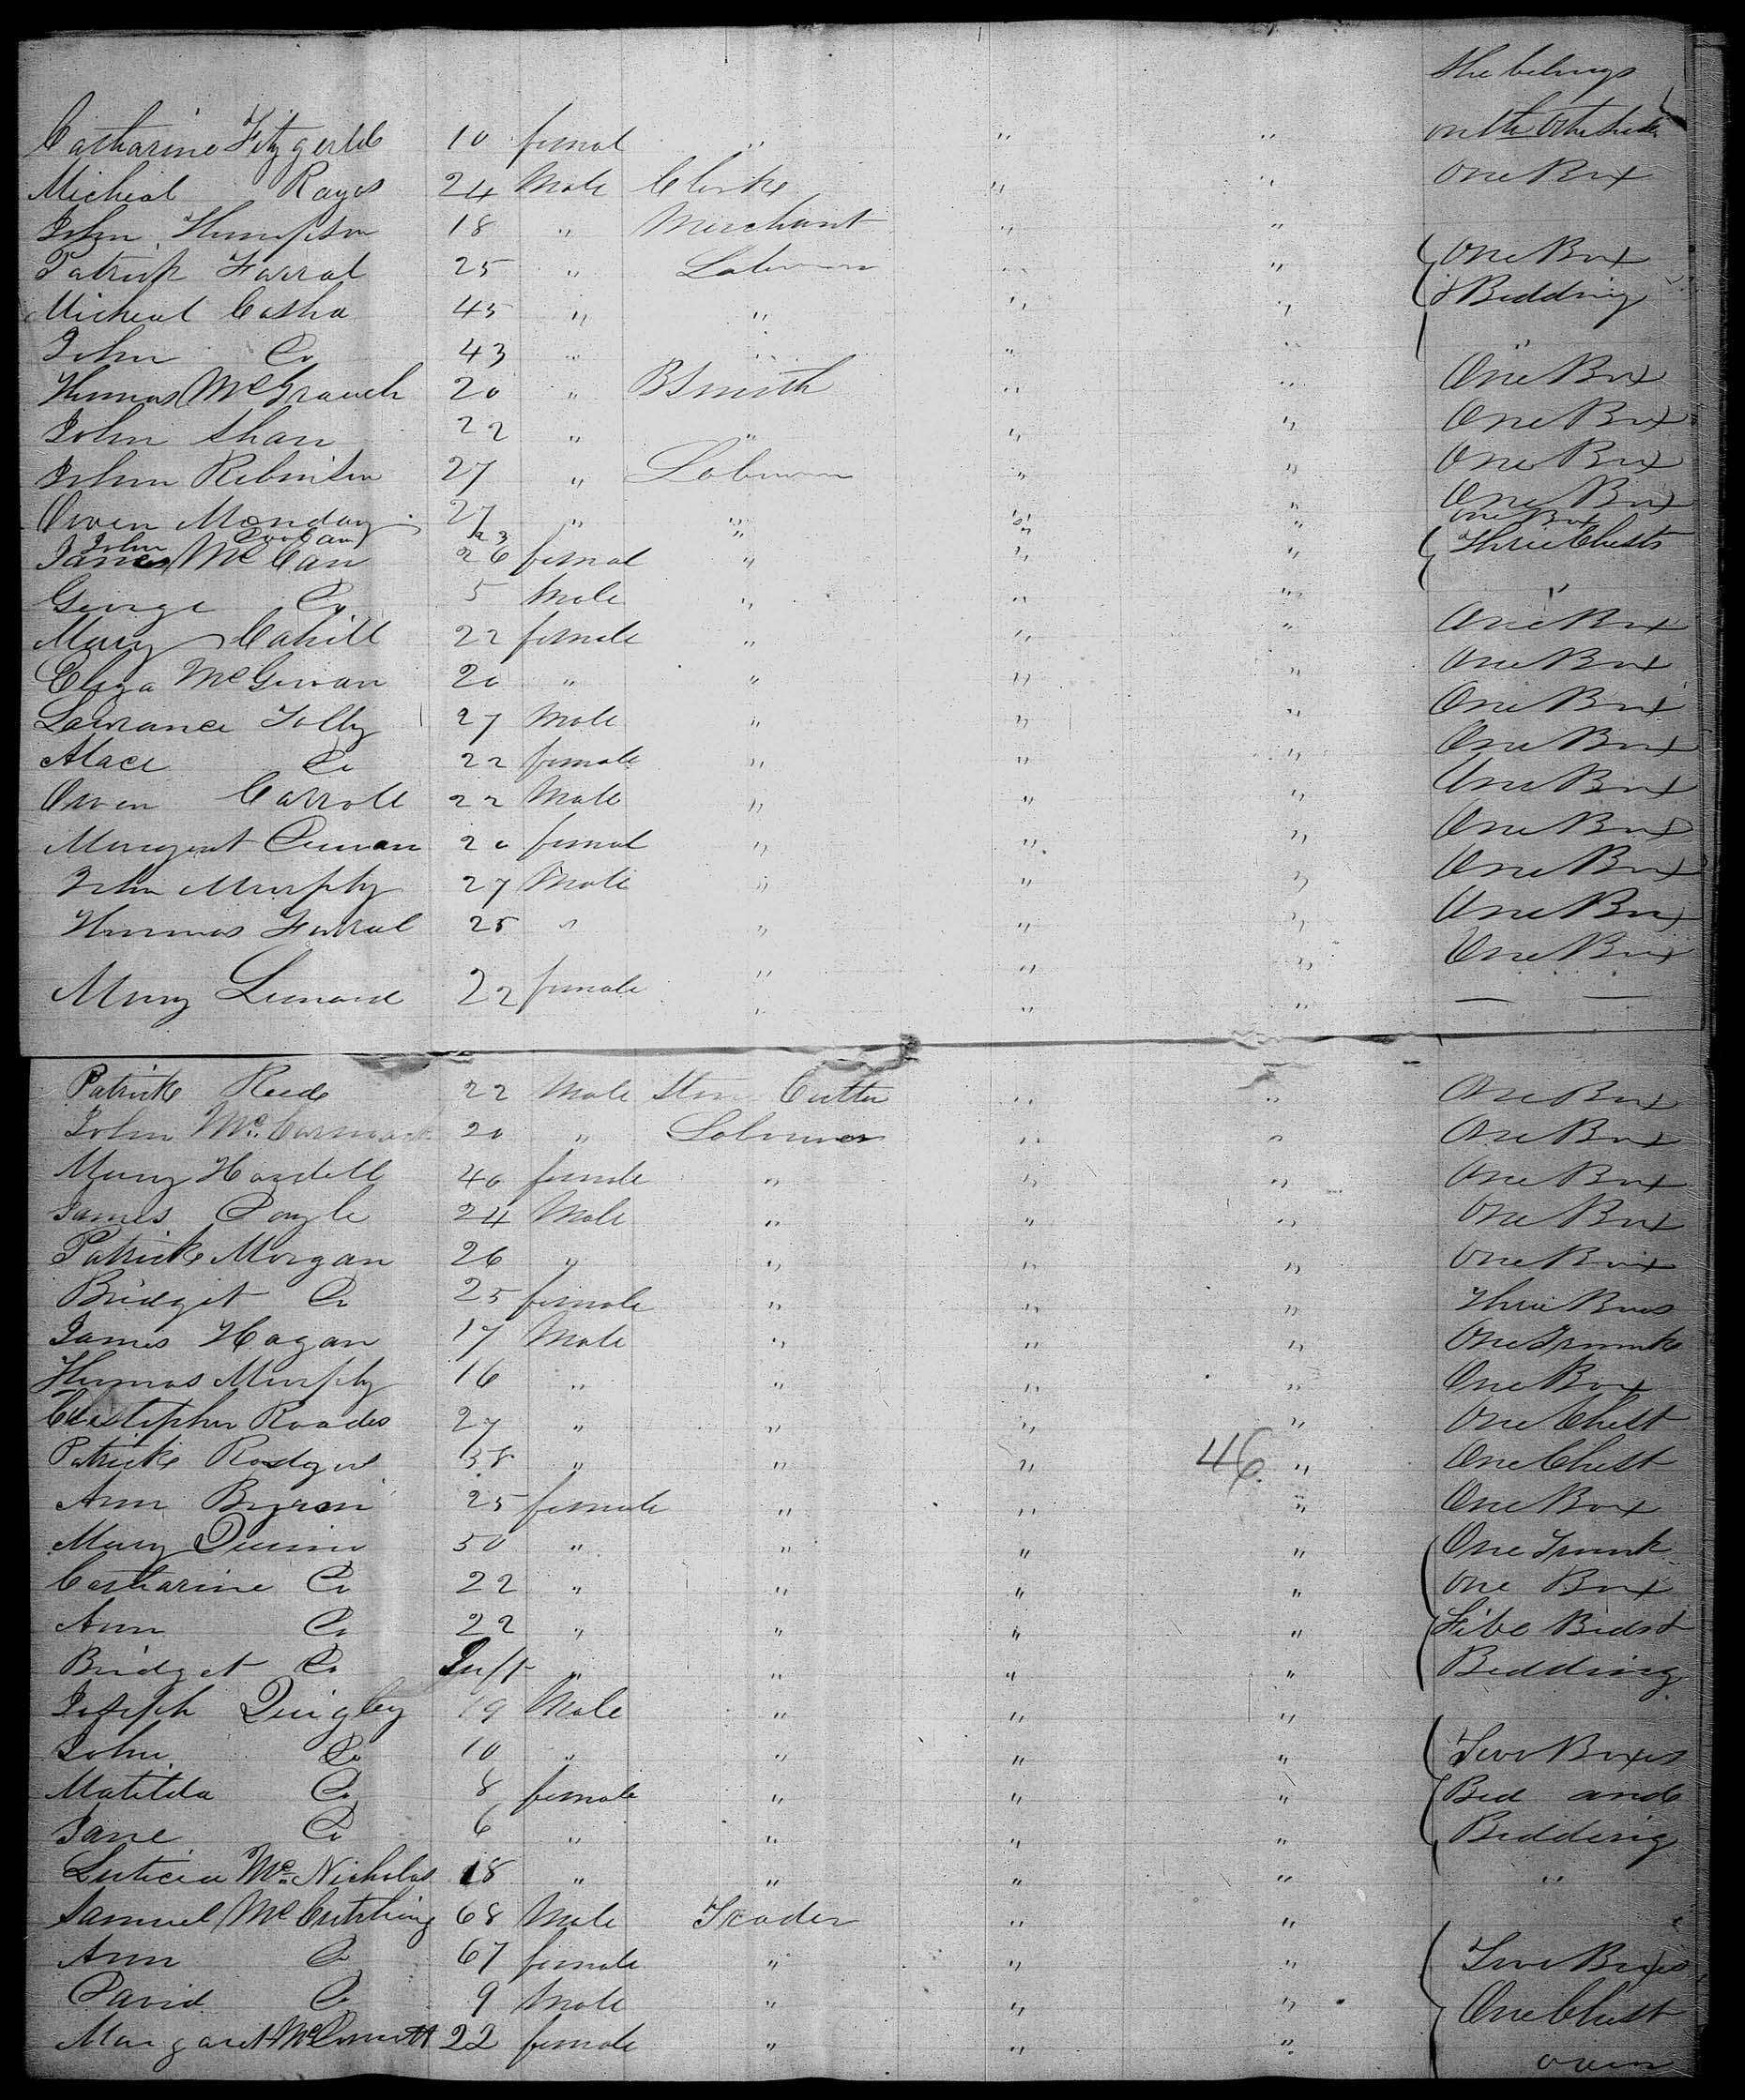 She belongs
Catharine Fitzgerld 10 femal " " " on the Other side
Micheal Rays 24 Male Clerke " " One Box
John Thompson 18 " Merchant " "
Patrick Farral 25 " Laborer " " One Box
Micheal Casha 45 " " " " & Bedding
John Do 43 " " " " "
Thomas McGrauch 20 " BSmith " " One Box
John Shan 22 " " " " One Box
John Robinson 27 " Laborer " " One Box
Owen Monday 27 " " " " One Box
John Doolan 23 " " " One Box
James McCan 26 femal " " " Three Chests
George Do 5 Male " " " "
Mary Cahill 22 female " " " One Box
Eliza McGowan 20 " " " " One Box
Lawrance Jolly 27 Male " " " One Box
Alace Do 22 female " " " One Box
Owen Carroll 22 Male " " " One Box
Margreat 20 femal " " " One Box
John Murphy 27 Male " " " One Box
Thomas Farral 25 " " " " One Box
" " " One Box
Mary Lennard 22 female " " " — —
Patricke Reede 22 Male Ston Cutter " " One Box
John Mc.Cormack 20 " Labourer " " One Box
Mary Hardell 40 female " " " One Box
James Doyle 24 Male " " " One Box
Patricke Morgan 26 " " " " One Box
Bridget Do 25 female " " " Three Boxes
James Hagan 17 Male " " " One Trunk
Thomas Murphy 16 " " " " One Box
Cristipher Roades 27 " " " " One Chest
Patricke Rodgers 38 " " " 46. " One Chest
Ann Byron 25 female " " " One Box
Mary Quinn 50 " " " " One Trunk
Catharine Do 22 " " " " One Box
Ann Do 22 " " " " Five Beds &
Bridget Do Inft " " " " Bedding
Joseph Quigley 19 Male " " "
John Do 10 " " " " Two Boxes
Matilda Do 8 female " " " Bed and
Jane Do 6 " " " " Bedding
Luticia Mc Nicholas 18 " " " " "
Samuel McCutching 68 Male Trader " "
Ann Do 67 female " " " Two Boxes
David Do 9 Male " " " One Chest
Margaret McDermott 22 female " " " over